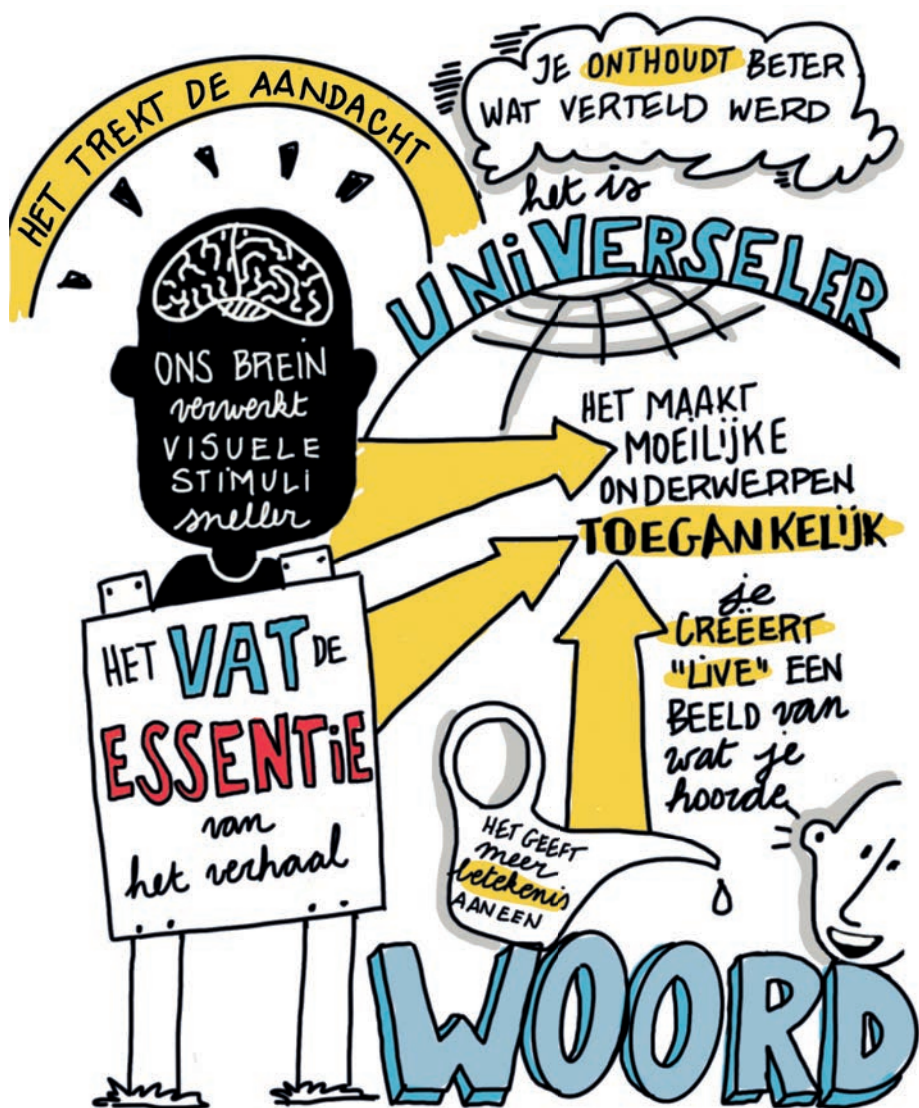 HET TREKT DE AANDACHT
JE ONTHOUDT BETER
WAT VERTELD WERD
het is
UNiVERSELER
ONS BREiN
verwerkt
VISUELE
STIMULI
sneller
HET MAAKT
MOEILIJKE
ONDERWERPEN
TOEGANKELIJK
HET VAT DE
ESSENTiE
van
het verhaal
je
CREËERT
"LIVE" EEN
BEELD van
wat je
hoorde
HET GEEFT
meer
betekenis
AAN EEN
WOORD